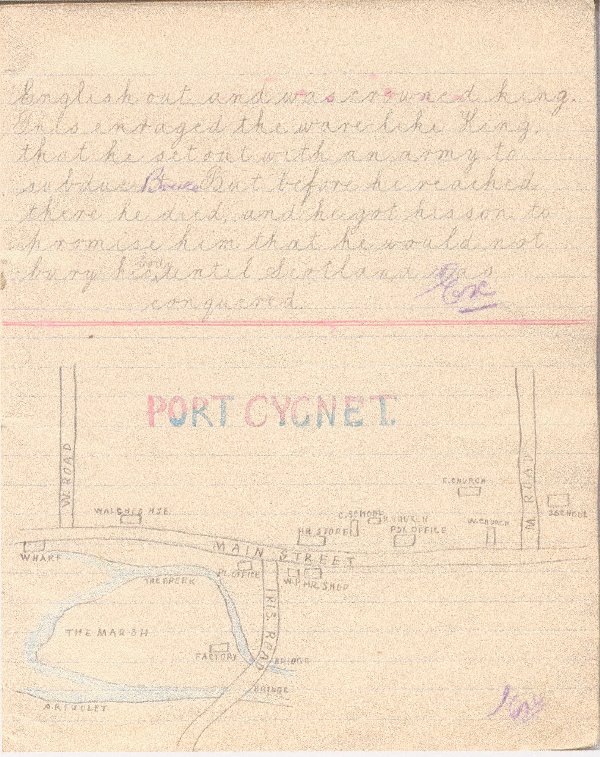 English out and was crowned king.
This enraged the ware like King,
that he set out with an army to
subdue Bruce But before he reached
there he died, and he got his son to
promise him that he would not
bury his body until Scotland was
conquered
PORT CYGNET.
W. ROAD
M. ROAD
C. CHURCH
S. SCHOOL
WALSHES HSE.
C. SCHOOL
CHURCH
HR. STORE
POL OFFICE
W. CHURCH
WHARF
MAIN STREET
THE CREEK
P. OFFICE
W. P.
HR. SHED
IRIS ROAD
THE MARSH
FACTORY
BRIDGE
BRIDGE
A RIVULET